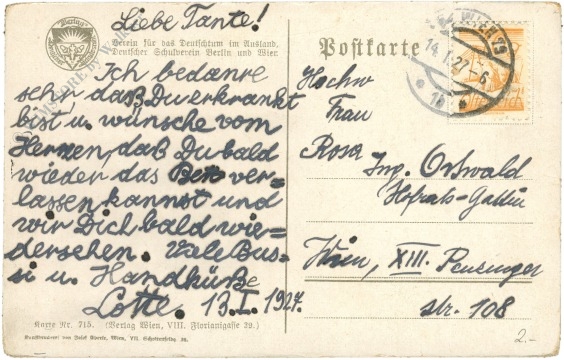 Liebe Tante!
Verein für das Deutschtum im Ausland,
Deutscher Schulverein Berlin und Wien.
Ich bedaure
sehr, daß Du erkrankt
bist u. wünsche vom
Herzen, daß Du bald
wieder das Bett ver=
lassen kannst und
wir Dich bald wie=
dersehen. Viele Bus=
si u. Handküße
Lotte. 13.I. 1927.
Karte Nr. 715. (Verlag Wien, VIII. Florianigasse 39.)
Postkarte
14.I.27
Hochw
Frau
Rosa Ing. Oswald
Hofrats-Gattin
Wien, XIII. Penzinger
str. 108
2.-